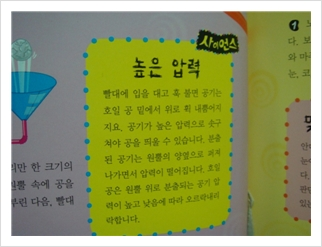 사이언스
높은 압력
빨대에 입을 대고 훅 불면 공기는
호일 공 밑에서 위로 휙 내뿜어지
지요. 공기가 높은 압력으로 솟구
쳐야 공을 띄울 수 있습니다. 분출
된 공기는 원뿔의 양옆으로 퍼져
나가면서 압력이 떨어집니다. 호일
공은 원뿔 위로 분출되는 공기 압
력이 높고 낮음에 따라 오르락내리
락합니다.
리만 한 크기의
원뿔 속에 공을
부린 다음, 빨대